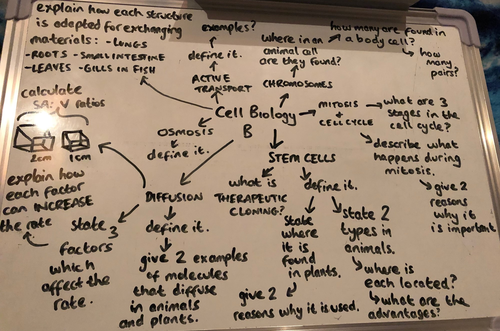 explain how each structure
is adapted for exchanging
materials: - LUNGS
- ROOTS - SMALL INTESTINE
- LEAVES - GILLS IN FISH
examples?
define it.
ACTIVE
TRANSPORT
where in an
animal cell
are they found?
CHROMOSOMES
how many are found in
a body cell?
how
many
pairs?
Cell Biology
B
MITOSIS
+
CELL CYCLE
what are 3
stages in the
cell cycle?
describe what
happens during
mitosis.
give 2
reasons
why it
is important
calculate
SA:V ratios
2cm
1cm
OSMOSIS
define it.
STEM CELLS
what is
THERAPEUTIC
CLONING?
define it.
state
where
it is
found
in plants.
give 2
reasons why it is used.
state 2
types in
animals.
where is
each located?
what are the
advantages?
DIFFUSION
define it.
give 2 examples
of molecules
that diffuse
in animals
and plants.
state 3
factors
which
affect the
rate.
explain how
each factor
can INCREASE
the rate